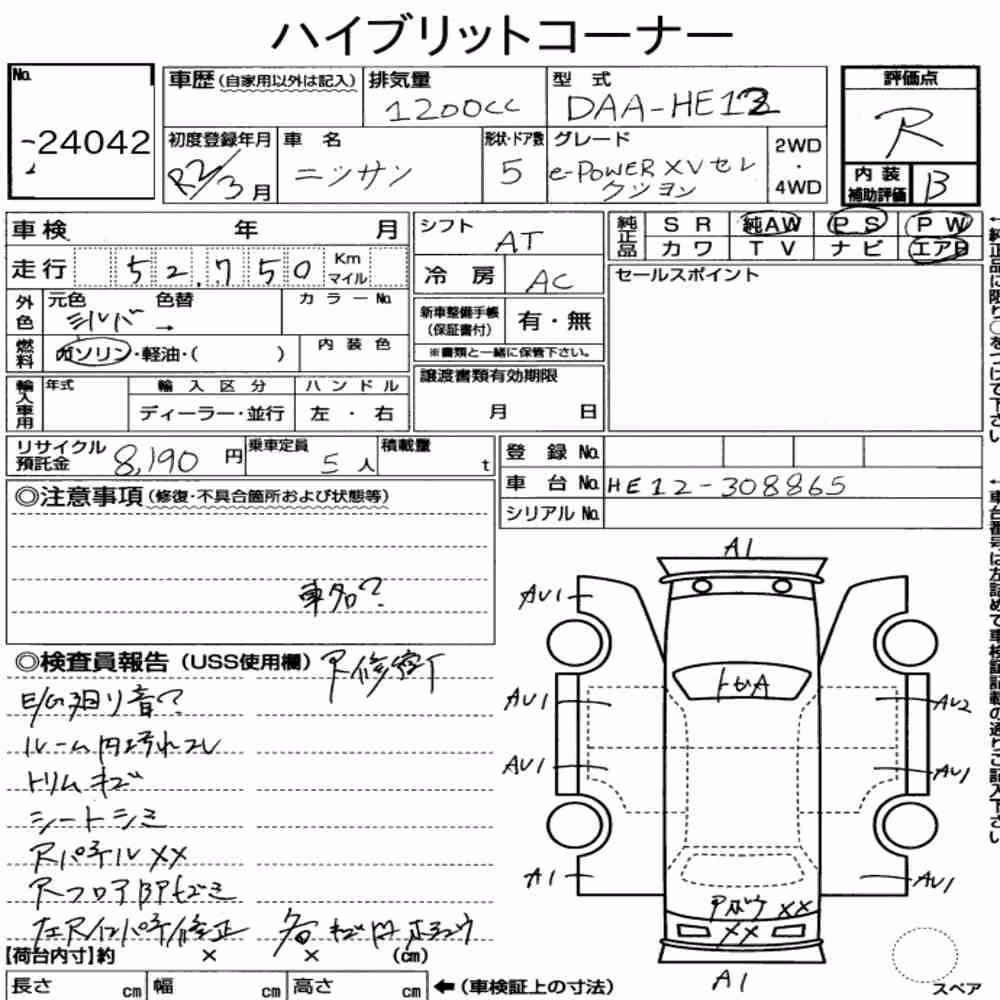 ハイブリットコーナー
No.
24042
車歴(自家用以外は記入)
排気量
1200cc
型式
DAA-HE12
評価点
R
初度登録年月
R2/3月
車名
ニッサン
形状・ドア数
5
グレード
e-POWER XVセレクション
2WD
・
4WD
内装
補助評価
B
車検 年 月
シフト
AT
純正品
SR 純AW PS PW
カワ TV ナビ エアB
走行 52,750 Km マイル
冷房
AC
セールスポイント
外色
元色 色替
シルバー →
カラーNo.
新車整備手帳
(保証書付)
有・無
※書類と一緒に保管下さい。
燃料
ガソリン・軽油・( )
内装色
譲渡書類有効期限
月 日
輸入車用
年式
輸入区分
ディーラー・並行
ハンドル
左・右
リサイクル
預託金
8,190円
乗車定員
5人
積載量
t
登録No.
車台No. HE12-308865
シリアルNo.
◎注意事項(修復・不具合箇所および状態等)
車名?
◎検査員報告(USS使用欄) R修ショウ
E/G廻り音?
ルーム内汚れコレ
トリムキズ
シートシミ
RパネルXX
Rフロア
左Rインパネ修正
各キズ内ホシュウ
A1
AU1
トビA
AU1
AU2
AU1
AU1
A1
AU1
XX
XX
A1
スペア
【荷台内寸】約 × × (cm)
長さ cm 幅 cm 高さ cm ←(車検証上の寸法)
←純正品に限り○をつけて下さい
←車台番号は左詰めで車検証記載の通りご記入下さい